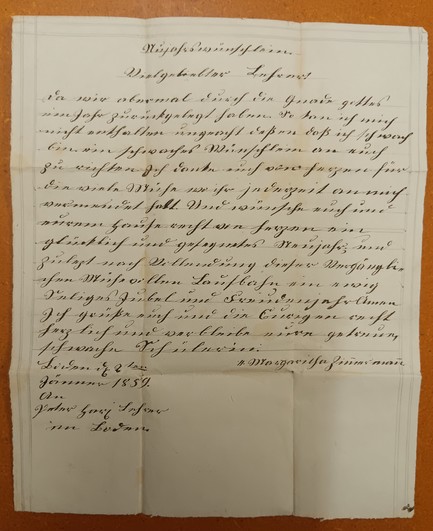 Nujahrswünschlein.
Vielgebeelter Lehrer!
Da wir abermal durch die Gnade gottes
ein Jahr zurückgelegt haben. So kan ich mich
nicht enthalten ungeacht deßen daß ich schwach
bin ein schwaches Wünschlein an euch
zu richten Ich danke euch von herzen für
die viele Mühe wo ihr jederzeit an mich
verwendet habt Und wünsche euch und
eurem hause recht von herzen ein
glücklich und gesegnetes Neujahr, und
zuletzt nach Vollendung dieser Vergängli-
chen Mühevollen Laufbahn ein ewig
Seliges Jubel und Freudenjahr Amen
Ich grüße euch und die Eurigen recht
herzlich und verbleibe eure getreue,
schwache Schülerin:
Margaritha Zimerman
Boden d 2ten
Jänner 1859.
An
Peter Hari Lehrer
im Boden